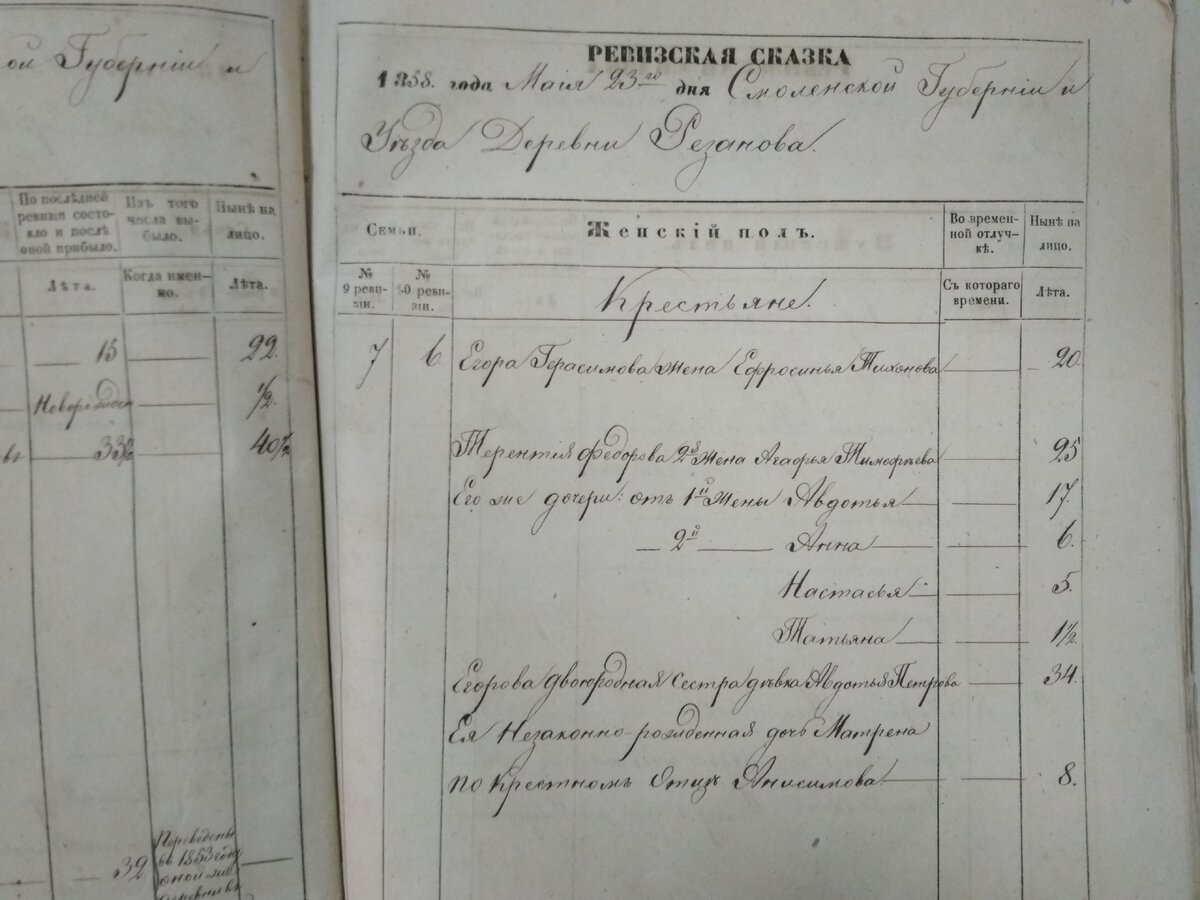 ой Губерніи и
По последней ревизіи состояло и послѣ оной прибыло.
Изъ того числа выбыло.
Нынѣ на лицо.
Лѣта.
Когда именно.
Лѣта.
15
22.
Новорожден
1/2.
33 1/2
40 1/2
32
Переведены
въ 1853 году
оной же
деревни въ
РЕВИЗСКАЯ СКАЗКА
1858. года Маія 23го дня Смоленской Губерніи и
Уѣзда Деревни Резанова.
Семьи.
Женскій полъ.
Во временной отлучкѣ.
Нынѣ на лицо.
№ 9 ревизіи.
№ 10 ревизіи.
Крестьяне.
Съ котораго времени.
Лѣта.
7 6. Егора Герасимова жена Ефросинья Тихонова 20.
Терентія Федорова 2я жена Агафья Тимофѣева 25
Его же дочери: отъ 1й жены Авдотья 17.
2й Анна 6.
Настасья 5.
Татьяна 1 1/2.
Егорова двоюродная сестра дѣвка Авдотья Петрова 34.
Ея Незаконно-рожденная дочь Матрена
по Крестномъ Отцѣ Анисимова 8.